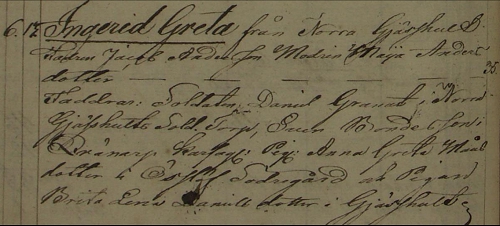 6. 17. Ingered Greta från Norra Gjäfshult
Fadren Jacob Anders Son Modren Maija Anders
dotter — — — — 35.
Faddrar: Soldaten Daniel Granat i Norra
Gjäfshults Sold. Torp, Sven
Pig. Anna Greta
dotter i Södregård och Pigan
Brita Lena Daniels dotter i Gjäfshult